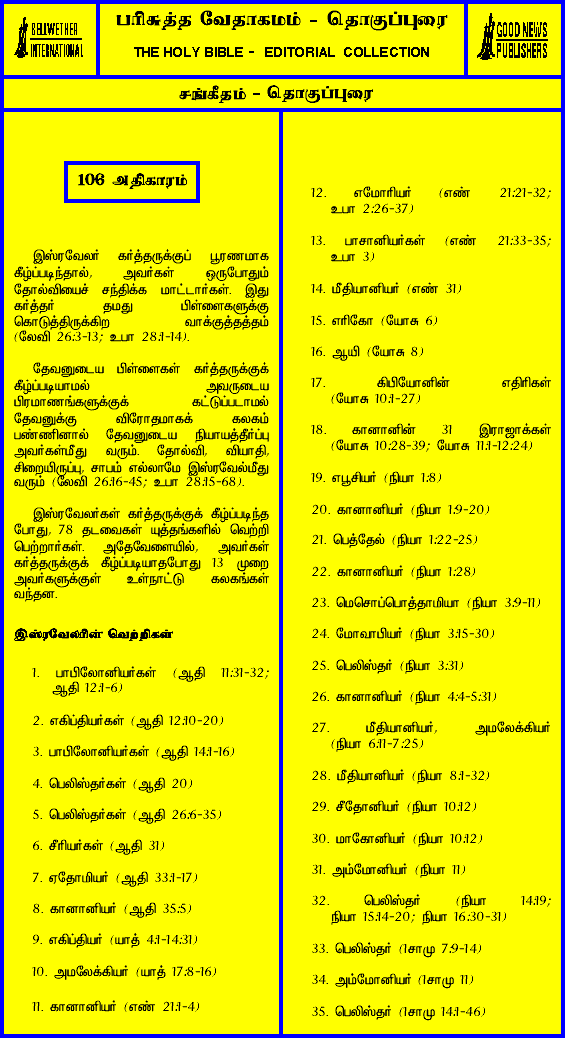 BELLWETHER
INTERNATIONAL
பரிசுத்த வேதாகமம் - தொகுப்புரை
THE HOLY BIBLE - EDITORIAL COLLECTION
GOOD NEWS
PUBLISHERS
சங்கீதம் - தொகுப்புரை
106 அதிகாரம்
இஸ்ரவேலர் கர்த்தருக்குப் பூரணமாக
கீழ்ப்படிந்தால், அவர்கள் ஒருபோதும்
தோல்வியைச் சந்திக்க மாட்டார்கள். இது
கர்த்தர் தமது பிள்ளைகளுக்கு
கொடுத்திருக்கிற வாக்குத்தத்தம்
(லேவி 26:3-13; உபா 28:1-14).
தேவனுடைய பிள்ளைகள் கர்த்தருக்குக்
கீழ்ப்படியாமல் அவருடைய
பிரமாணங்களுக்குக் கட்டுப்படாமல்
தேவனுக்கு விரோதமாகக் கலகம்
பண்ணினால் தேவனுடைய நியாயத்தீர்ப்பு
அவர்கள்மீது வரும். தோல்வி, வியாதி,
சிறையிருப்பு, சாபம் எல்லாமே இஸ்ரவேல்மீது
வரும் (லேவி 26:16-45; உபா 28:15-68).
இஸ்ரவேலர்கள் கர்த்தருக்குக் கீழ்ப்படிந்த
போது, 78 தடவைகள் யுத்தங்களில் வெற்றி
பெற்றார்கள். அதேவேளையில், அவர்கள்
கர்த்தருக்குக் கீழ்ப்படியாதபோது 13 முறை
அவர்களுக்குள் உள்நாட்டு கலகங்கள்
வந்தன.
இஸ்ரவேலரின் வெற்றிகள்
1. பாபிலோனியர்கள் (ஆதி 11:31-32;
ஆதி 12:1-6)
2. எகிப்தியர்கள் (ஆதி 12:10-20)
3. பாபிலோனியர்கள் (ஆதி 14:1-16)
4. பெலிஸ்தர்கள் (ஆதி 20)
5. பெலிஸ்தர்கள் (ஆதி 26:6-35)
6. சீரியர்கள் (ஆதி 31)
7. ஏதோமியர் (ஆதி 33:1-17)
8. கானானியர் (ஆதி 35:5)
9. எகிப்தியர் (யாத் 4:1-14:31)
10. அமலேக்கியர் (யாத் 17:8-16)
11. கானானியர் (எண் 21:1-4)
12. எமோரியர் (எண் 21:21-32;
உபா 2:26-37)
13. பாசானியர்கள் (எண் 21:33-35;
உபா 3)
14. மீதியானியர் (எண் 31)
15. எரிகோ (யோசு 6)
16. ஆயி (யோசு 8)
17. கிபியோனின் எதிரிகள்
(யோசு 10:1-27)
18. கானானின் 31 இராஜாக்கள்
(யோசு 10:28-39; யோசு 11:1-12:24)
19. எபூசியர் (நியா 1:8)
20. கானானியர் (நியா 1:9-20)
21. பெத்தேல் (நியா 1:22-25)
22. கானானியர் (நியா 1:28)
23. மெசொப்பொத்தாமியா (நியா 3:9-11)
24. மோவாபியர் (நியா 3:15-30)
25. பெலிஸ்தர் (நியா 3:31)
26. கானானியர் (நியா 4:4-5:31)
27. மீதியானியர், அமலேக்கியர்
(நியா 6:11-7:25)
28. மீதியானியர் (நியா 8:1-32)
29. சீதோனியர் (நியா 10:12)
30. மாகோனியர் (நியா 10:12)
31. அம்மோனியர் (நியா 11)
32. பெலிஸ்தர் (நியா 14:19;
நியா 15:14-20; நியா 16:30-31)
33. பெலிஸ்தர் (1சாமு 7:9-14)
34. அம்மோனியர் (1சாமு 11)
35. பெலிஸ்தர் (1சாமு 14:1-46)